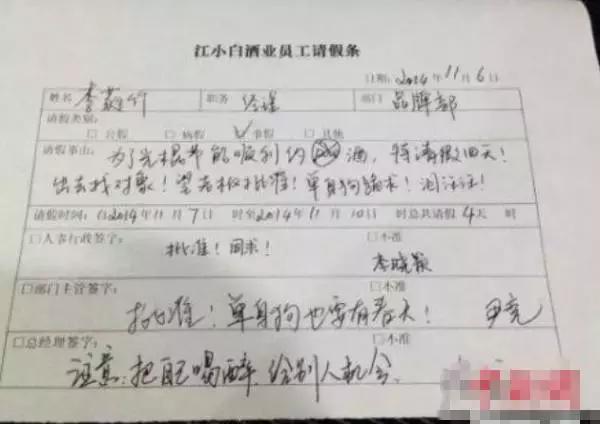 江小白酒业员工请假条
日期：2014年11月6日
姓名 李 竹 职务 经理 部门 品牌部
请假类别：
□公假 □病假 ☑事假 □其他
请假事由：为了光棍节能顺利约 酒，特请假四天！
出去找对象！望老板批准！单身狗跪求！泪汪汪！
请假时间：自2014年11月7日 时至2014年11月10日 时总共请假4天 时
□人事行政签字： □不准
批准！同求！ 李晓颖
□部门主管签字： □不准
批准！单身狗也要有春天！ 尹亮
□总经理签字： □不准
注意：把自己喝醉，给别人机会。